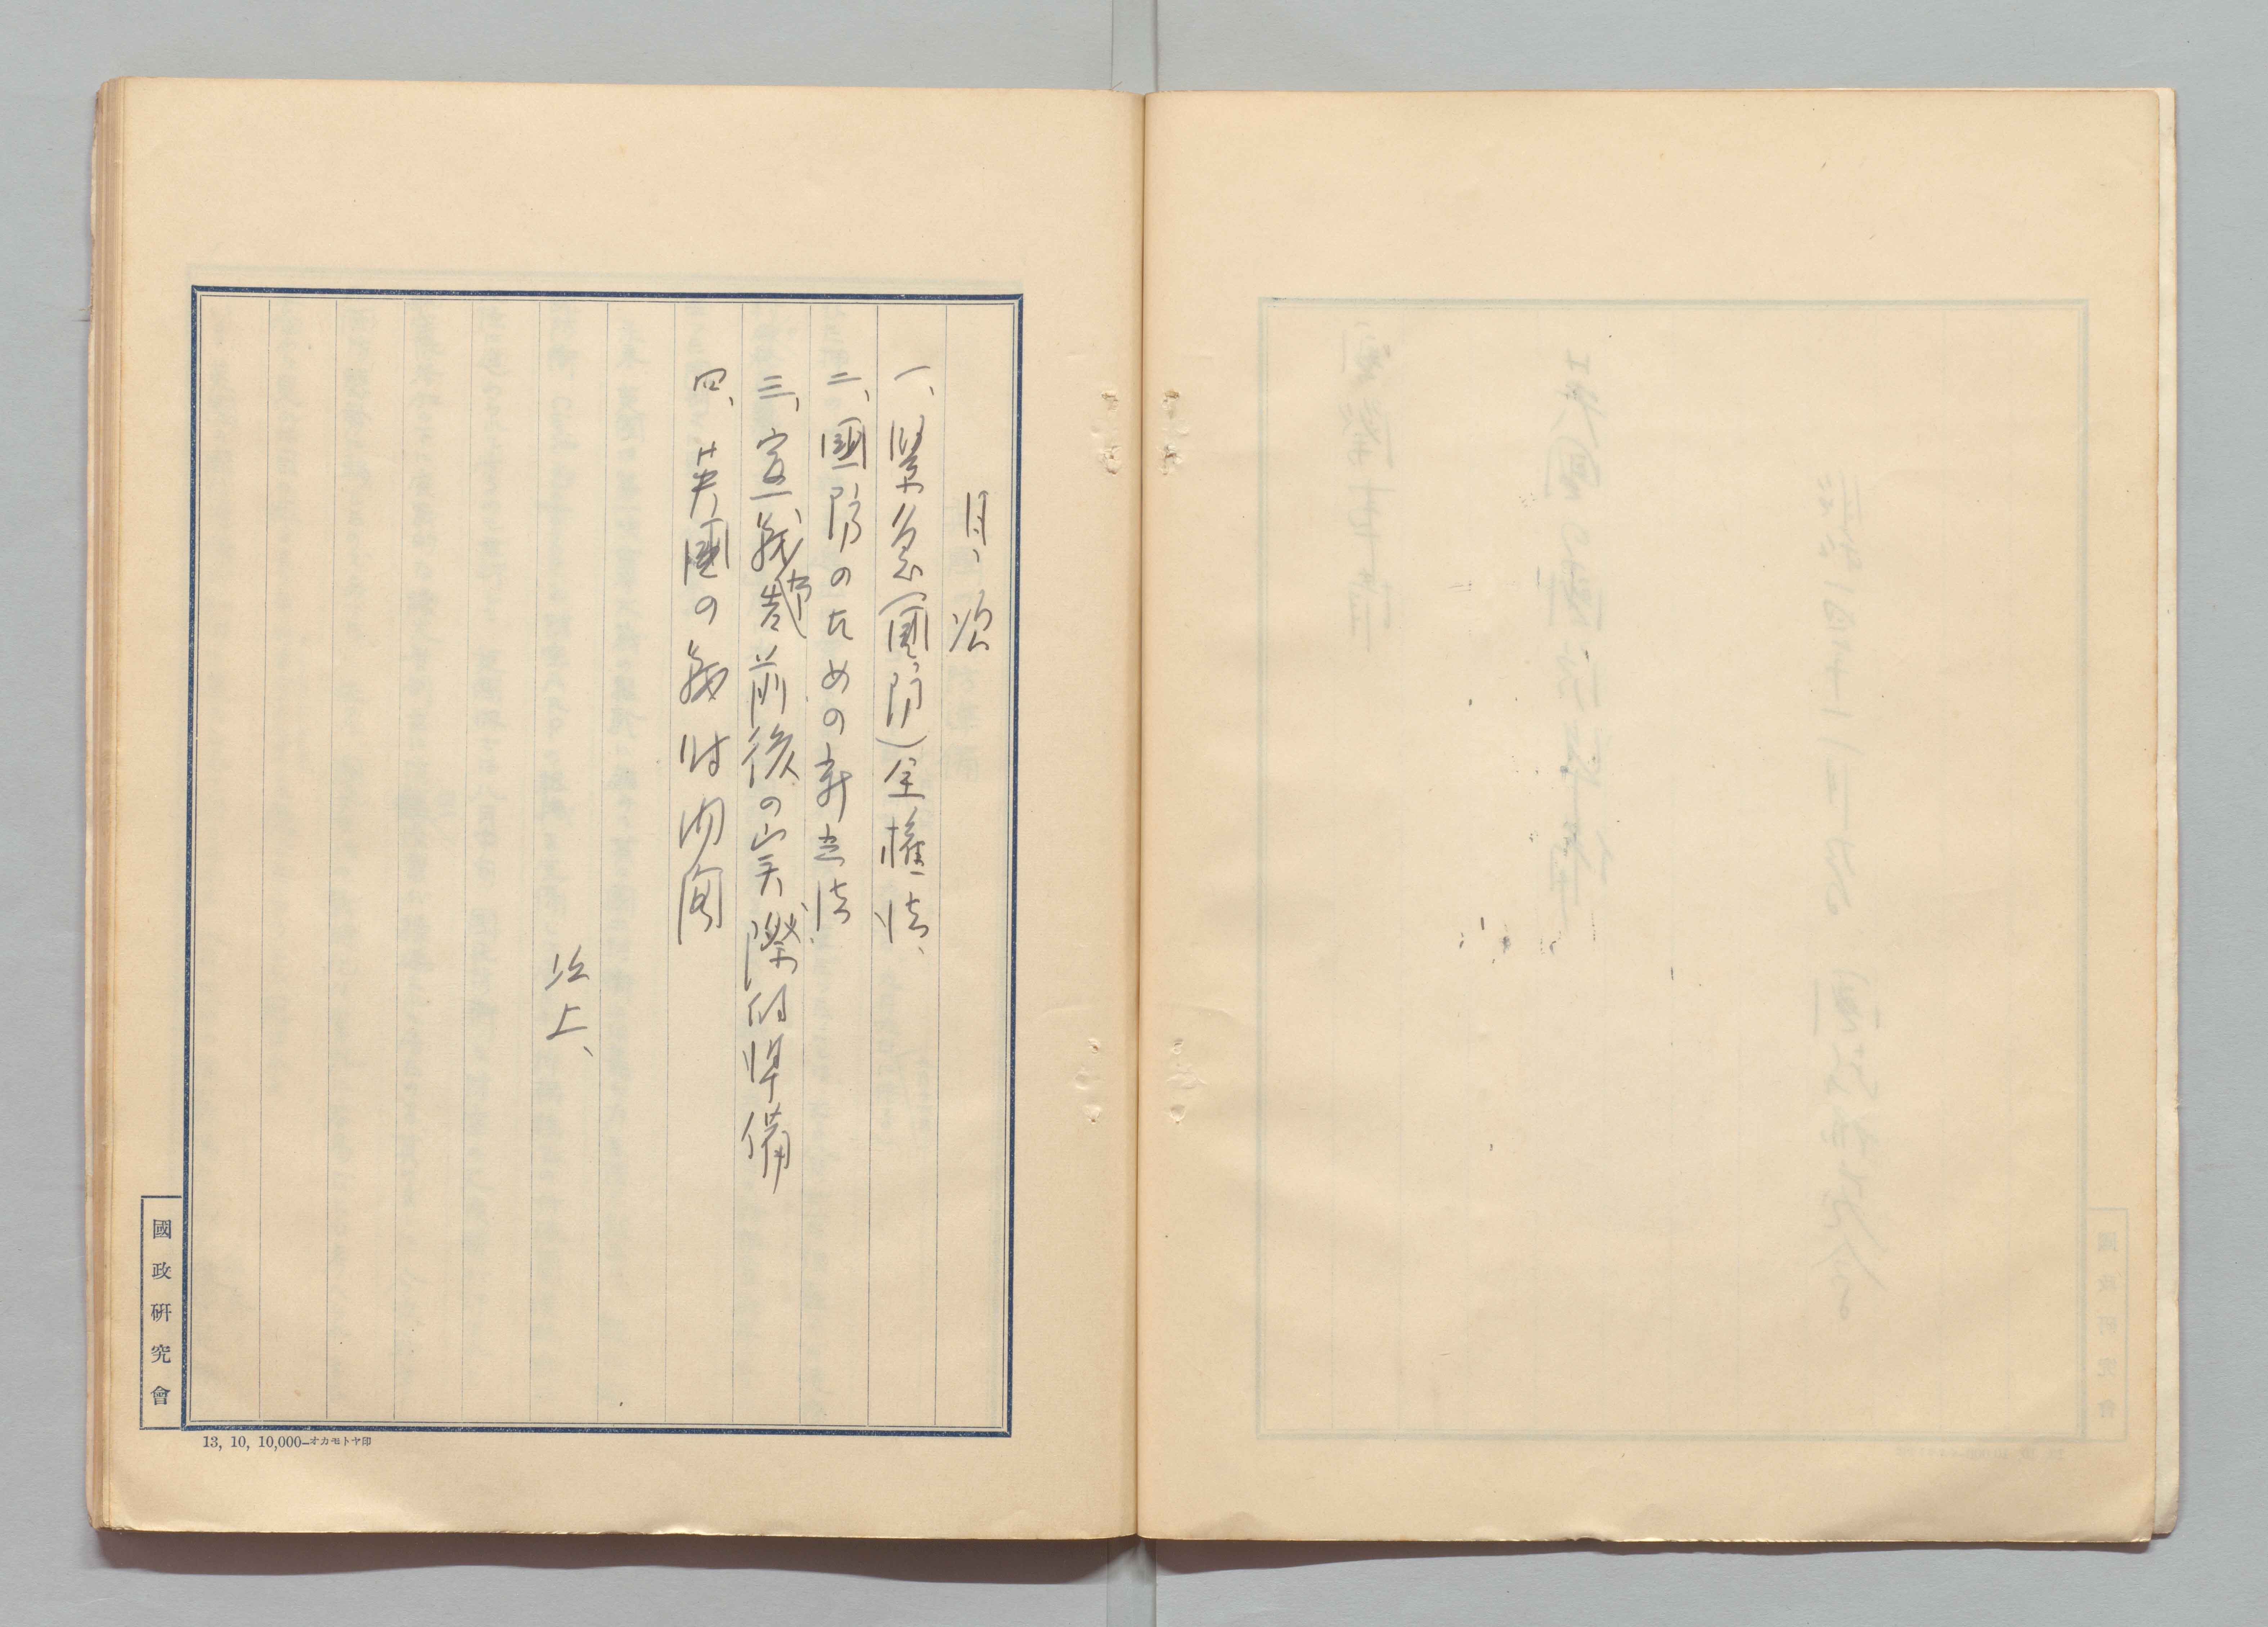 目次
一、緊急(國防)全権法、
二、國防のための新立法
三、宣戰布告前後の実際的準備
四、英國の戰時内閣
以上、
國政硏究會
13, 10, 10,000—オカモトヤ印